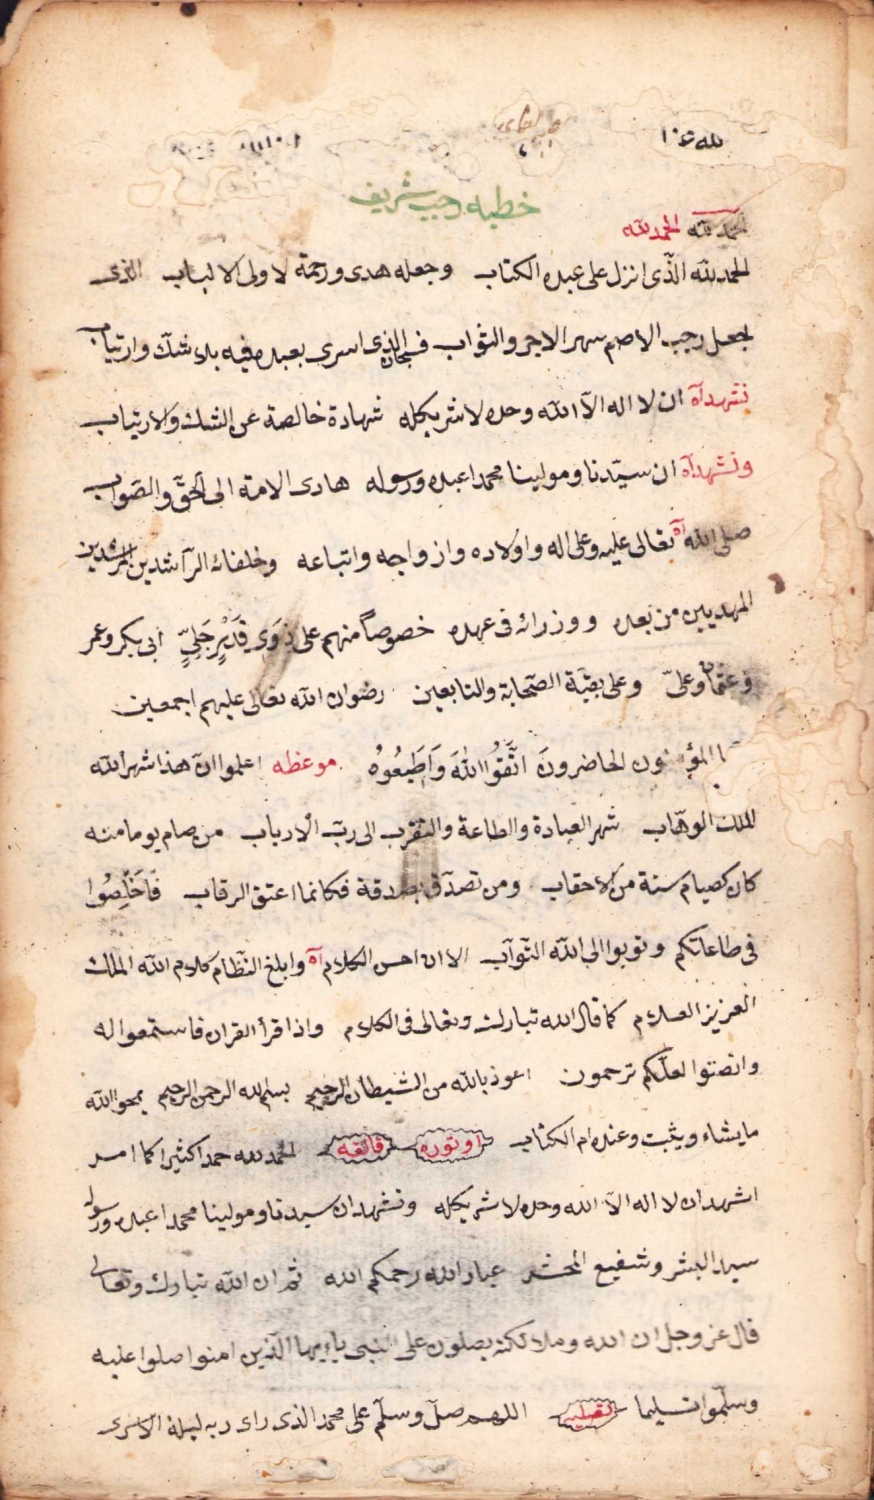 خطبه رجب شريف
الحمد لله الحمد لله
الحمد لله الّذى انزل على عبده الكتاب وجعله هدى ورحمة لاولى الالباب الذى
جعل رجب الاصم شهر الاجر والثواب فسبحان الذى اسرى بعبده فيه بلا شك وارتياب
نشهد آه ان لا اله الّا الله وحده لا شريك له شهادة خالصة عن الشك والارتياب
ونشهد آه ان سيّدنا ومولينا محمدا عبده ورسوله هادى الامة الى الحقّ والصّواب
صلى الله آه تعالى عليه وعلى اله واولاده وازواجه واتباعه وخلفائه الرّاشدين المرشدين
المهديين من بعده ووزرائه فى عهده خصوصاً منهم على ذَوِى قَدْرٍ جَلِىٍّ ابى بكر وعمر
وعثمان وعلىّ وعلى بقيّة الصّحابة والتابعين رضوان الله تعالى عليهم اجمعين
المؤمنون الحاضرونَ اتَّقُوا اللهَ وَاَطِيعُوهُ موعظه اعلموا انّ هذا شهر الله
الملك الوهّاب شهر العبادة والطاعة والتقرب الى ربّ الارباب من صام يوما منه
كان كصيام سنة من الاحقاب ومن تصدّق بصدقة فكانما اعتق الرقاب فَاَخْلِصُوا
فى طاعاتكم وتوبوا الى الله التّوّاب الا ان احسن الكلام آه وابلغ النّظام كلام الله الملك
العزيز العلام كما قال الله تبارك وتعالى فى الكلام واذا قرأ القران فاستمعوا له
وانصتوا لعلّكم ترحمون اعوذ بالله من الشيطان الرجيم بسم الله الرحمن الرحيم يمحو الله
ما يشاء ويثبت وعنده ام الكتاب اوتوره قالقه الحمد لله حمدا كثيرا كما امر
اشهد ان لا اله الّا الله وحده لا شريك له ونشهد ان سيدنا ومولينا محمدا عبده ورسوله
سيد البشر وشفيع المحشر عباد الله رحمكم الله ثم ان الله تبارك وتعالى
قال عز وجل ان الله وملائكته يصلون على النبى ياايها الّذين امنوا صلوا عليه
وسلّموا تسليما تصليه اللهم صلّ وسلّم على محمد الذى راى ربه ليلة الاسرى